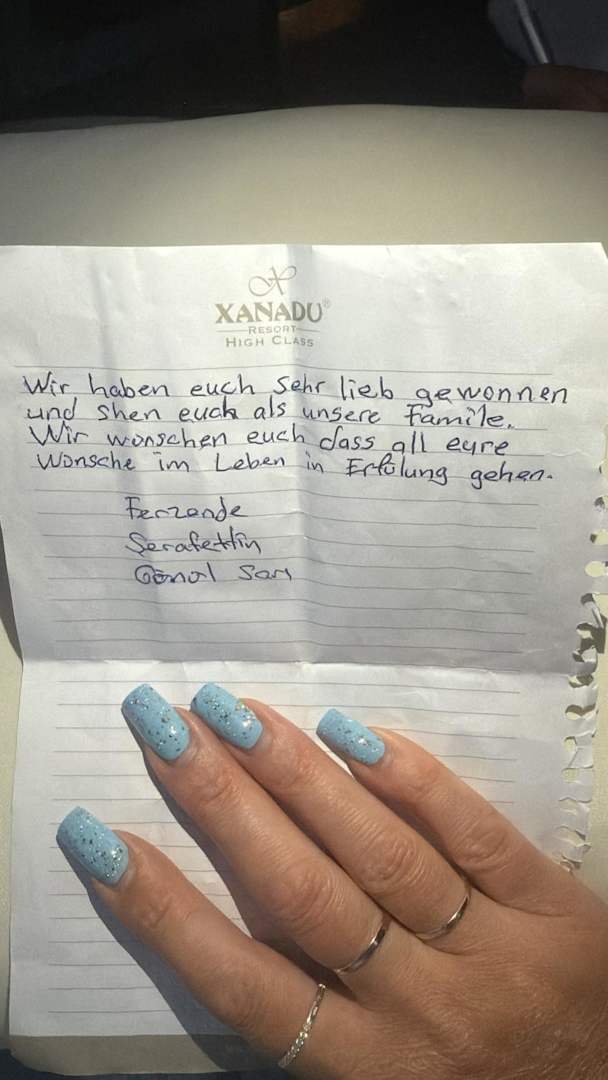 XANADU®
RESORT
HIGH CLASS
Wir haben euch sehr lieb gewonnen
und shen euch als unsere Famile.
Wir wonschen euch dass all eure
Wonsche im Leben in Erfülung gehen.
Ferzende
Serafettin